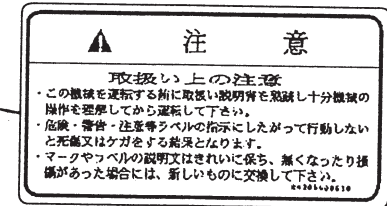 注 意
取扱い上の注意
・この機械を運転する前に取扱い説明書を熟読し十分機械の
操作を理解してから運転して下さい。
・危険・警告・注意等ラベルの指示にしたがって行動しない
と死傷又はケガをする結果となります。
・マークやラベルの説明文はきれいに保ち、無くなったり損
傷があった場合には、新しいものに交換して下さい。